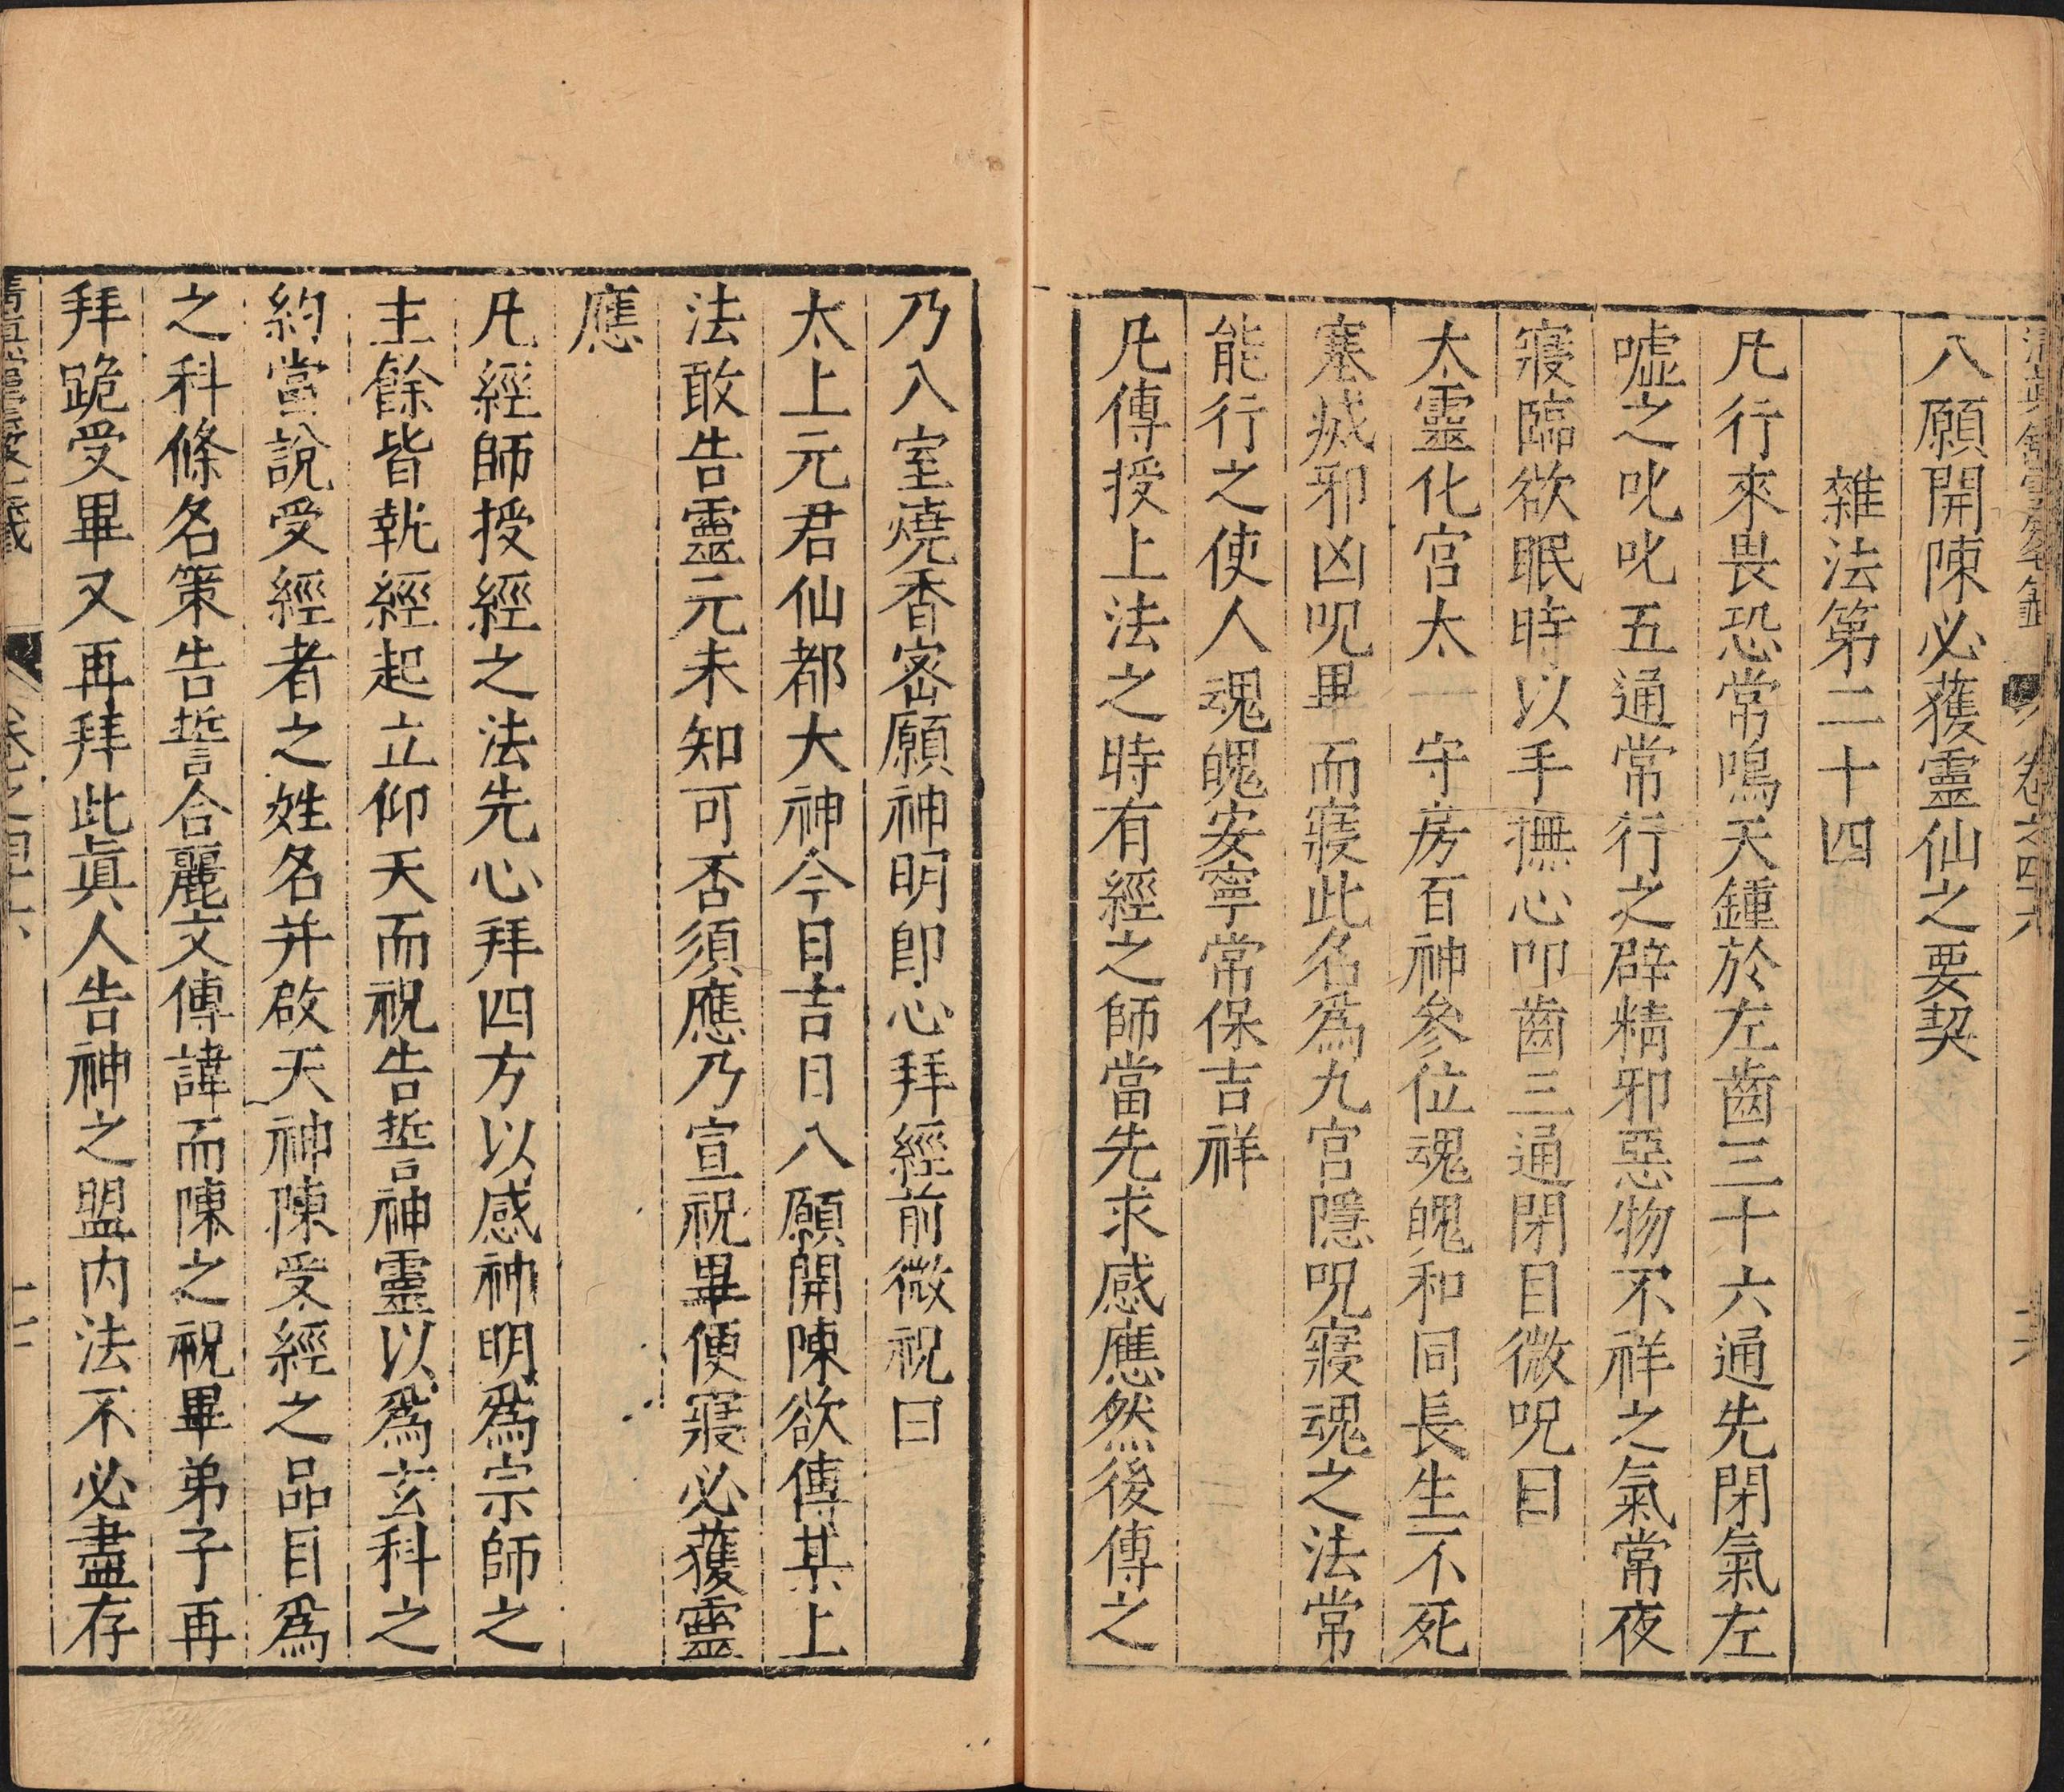 清真館雲笈籤 卷之四十六
八願開陳必獲靈仙之要契
雜法第二十四
凡行來畏恐常鳴天鍾於左齒三十六通先閉氣左
嘘之叱叱五通常行之辟精邪惡物不祥之氣常夜
寢臨欲眠時以手撫心叩齒三通閉目微呪曰
太靈化宫太一守房百神參位魂魄和同長生不死
塞滅邪凶呪畢而寢此名爲九宫隱呪寢魂之法常
能行之使人魂魄安寧常保吉祥
凡傳授上法之時有經之師當先求感應然後傳之
乃入室燒香密願神明卽心拜經前微祝曰
太上元君仙都大神今日吉日八願開陳欲傳某上
法敢告靈元未知可否須應乃宣祝畢便寢必獲靈
應
凡經師授經之法先心拜四方以感神明爲宗師之
主餘皆執經起立仰天而祝告誓神靈以爲玄科之
約當說受經者之姓名并啟天神陳受經之品目爲
之科條名策告誓合麗文傳諱而陳之祝畢弟子再
拜跪受畢又再拜此眞人告神之盟内法不必盡存